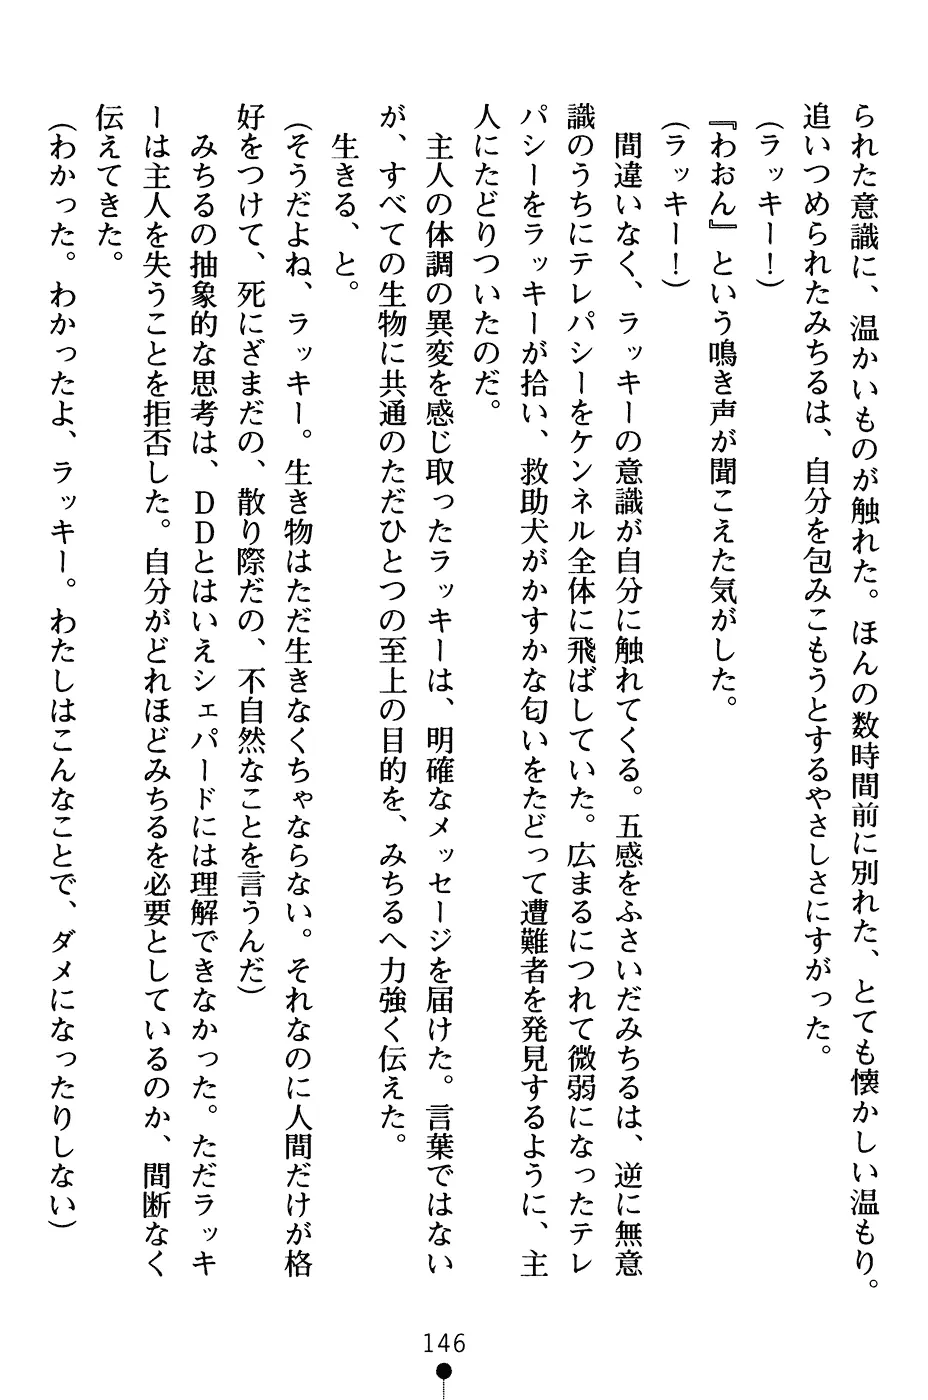 られた意識に、温かいものが触れた。ほんの数時間前に別れた、とても懐かしい温もり。
追いつめられたみちるは、自分を包みこもうとするやさしさにすがった。
（ラッキー！）
『わおん』という鳴き声が聞こえた気がした。
（ラッキー！）
間違いなく、ラッキーの意識が自分に触れてくる。五感をふさいだみちるは、逆に無意
識のうちにテレパシーをケンネル全体に飛ばしていた。広まるにつれて微弱になったテレ
パシーをラッキーが拾い、救助犬がかすかな匂いをたどって遭難者を発見するように、主
人にたどりついたのだ。
主人の体調の異変を感じ取ったラッキーは、明確なメッセージを届けた。言葉ではない
が、すべての生物に共通のただひとつの至上の目的を、みちるへ力強く伝えた。
生きる、と。
（そうだよね、ラッキー。生き物はただ生きなくちゃならない。それなのに人間だけが格
好をつけて、死にざまだの、散り際だの、不自然なことを言うんだ）
みちるの抽象的な思考は、ＤＤとはいえシェパードには理解できなかった。ただラッキ
ーは主人を失うことを拒否した。自分がどれほどみちるを必要としているのか、間断なく
伝えてきた。
（わかった。わかったよ、ラッキー。わたしはこんなことで、ダメになったりしない）
146